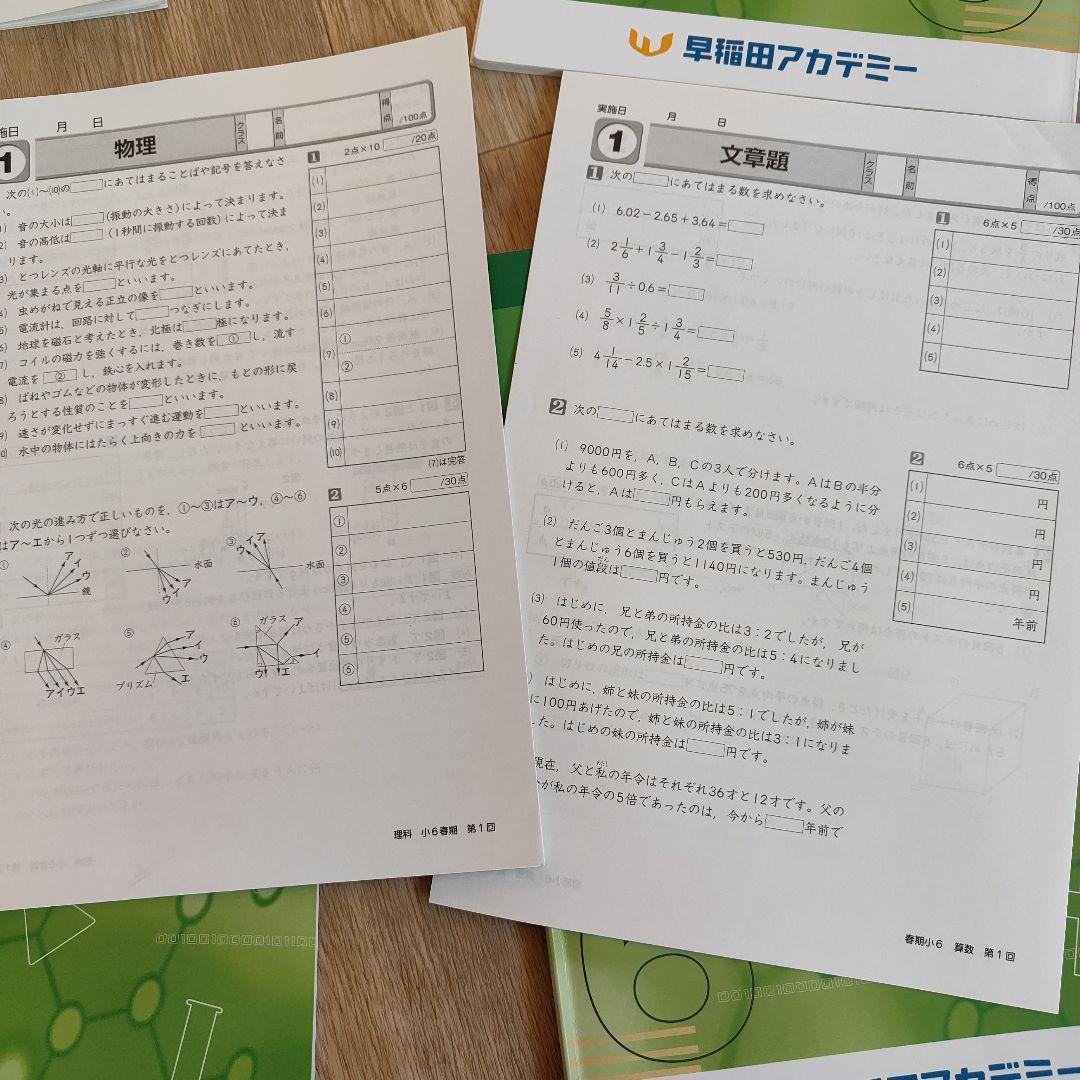 早稲田アカデミー
施日 月 日
1 物理 クラス 名前 得点 /100点
次の(1)〜(10)の にあてはまることばや記号を答えなさ
い。
音の大小は (振動の大きさ)によって決まります。
音の高低は (1秒間に振動する回数)によって決ま
ります。
とつレンズの光軸に平行な光をとつレンズにあてたとき,
光が集まる点を といいます。
虫めがねで見える正立の像を といいます。
電流計は, 回路に対して つなぎにします。
地球を磁石と考えたとき, 北極は 極になります。
コイルの磁力を強くするには, 巻き数を ① し, 流す
電流を ② し, 鉄心を入れます。
ばねやゴムなどの物体が変形したときに, もとの形に戻
ろうとする性質のことを といいます。
速さが変化せずにまっすぐ進む運動を といいます。
水中の物体にはたらく上向きの力を といいます。
1 2点×10 /20点
(1)
(2)
(3)
(4)
(5)
(6)
(7) ①
②
(8)
(9)
(10)
(7)は完答
次の光の進み方で正しいものを, ①〜③はア〜ウ, ④〜⑥
はア〜エから1つずつ選びなさい。
① ア イ ウ 鏡
② 水面 ア イ ウ
③ ア イ ウ 水面
④ ガラス アイウエ
⑤ ア イ ウ エ プリズム
⑥ ガラス ア イ ウ エ
2 5点×6 /30点
①
②
③
④
⑤
⑥
理科 小6春期 第1回
実施日 月 日
1 文章題 クラス 名前 得点 /100点
1 次の にあてはまる数を求めなさい。
(1) 6.02−2.65+3.64=
(2) 2 1/6+1 3/4−1 2/3=
(3) 3/11÷0.6=
(4) 5/8×1 2/5÷1 3/4=
(5) 4 1/14−2.5×1 2/15=
1 6点×5 /30点
(1)
(2)
(3)
(4)
(5)
2 次の にあてはまる数を求めなさい。
(1) 9000円を, A, B, Cの3人で分けます。AはBの半分
よりも600円多く, CはAよりも200円多くなるように分
けると, Aは 円もらえます。
(2) だんご3個とまんじゅう2個を買うと530円, だんご4個
とまんじゅう6個を買うと1140円になります。まんじゅう
1個の値段は 円です。
(3) はじめに, 兄と弟の所持金の比は3:2でしたが, 兄が
60円使ったので, 兄と弟の所持金の比は5:4になりまし
た。はじめの兄の所持金は 円です。
はじめに, 姉と妹の所持金の比は5:1でしたが, 姉が妹
に100円あげたので, 姉と妹の所持金の比は3:1になりま
した。はじめの妹の所持金は 円です。
現在, 父と私の年令はそれぞれ36才と12才です。父の
が私の年令の5倍であったのは, 今から 年前で
2 6点×5 /30点
(1) 円
(2) 円
(3) 円
(4) 円
(5) 年前
春期小6 算数 第1回
早稲田アカデミー